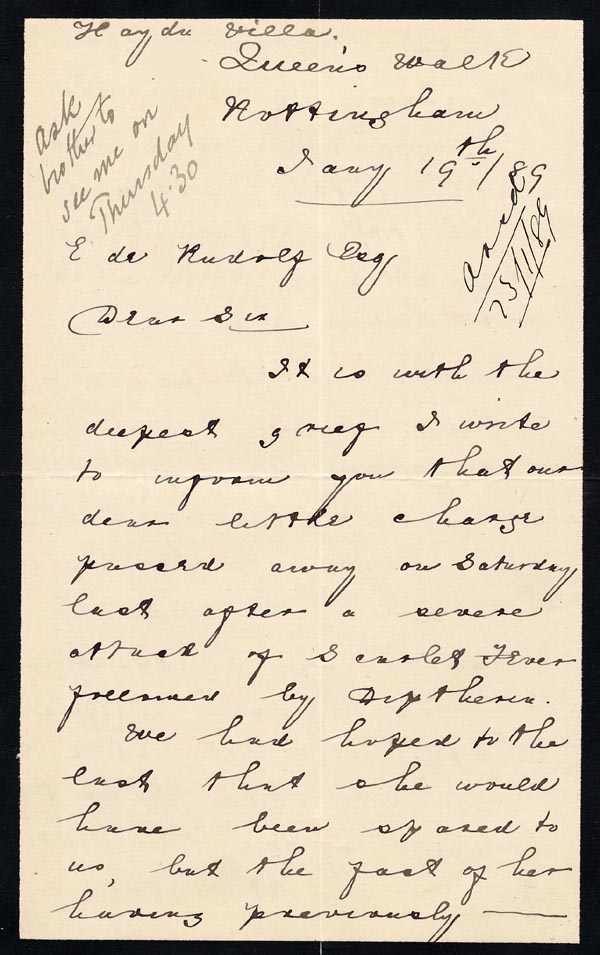 Haydn Villa.
Queen's Walk
Nottingham
Jany 19th/89
ask
brother to
see me on
Thursday
4.30
ansd
25/1/89
E de Rudolf Esq
Dear Sir
It is with the
deepest grief I write
to inform you that our
dear little charge
passed away on Saturday
last after a severe
attack of Scarlet Fever
followed by Diptheria.
We had hoped to the
last that she would
have been spared to
us, but the fact of her
having previously —